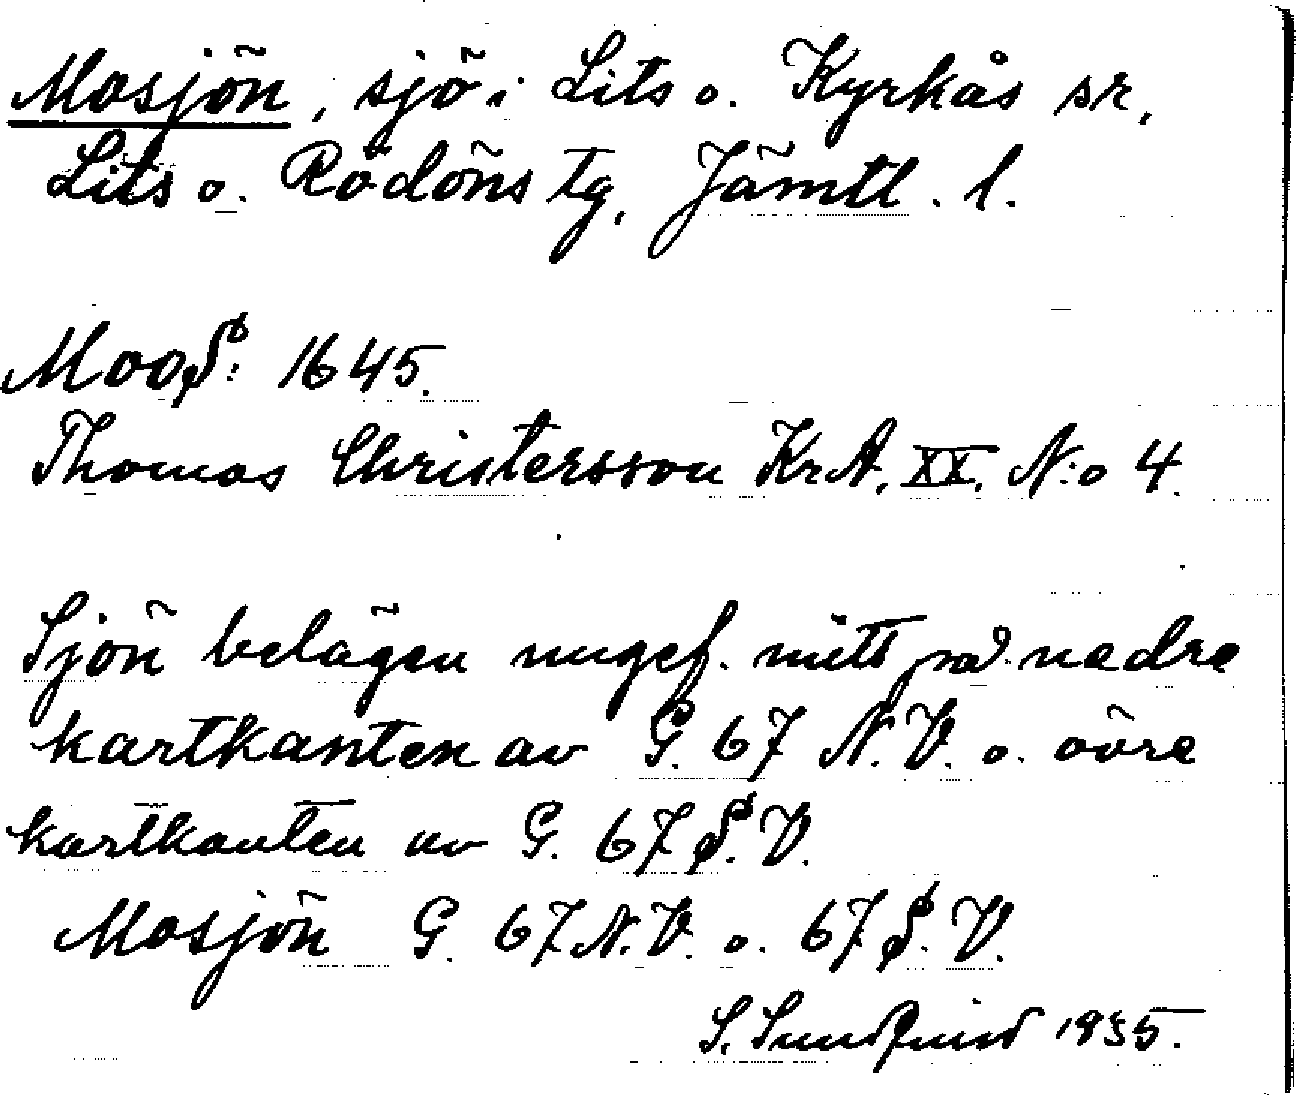 Mosjön, sjö i Lits o. Kyrkås sr,
Lits o. Rödöns tg, Jämtl. l.
MooS: 1645.
Thomas Christersson KrA. XX. N:o 4.
Sjön belägen ungef. mitt på nedre
kartkanten av G. 67 N.V. o. övre
kartkanten av G. 67 S.V.
Mosjön G. 67 N.V. o. 67 S.V.
S. Sundquist 1935.